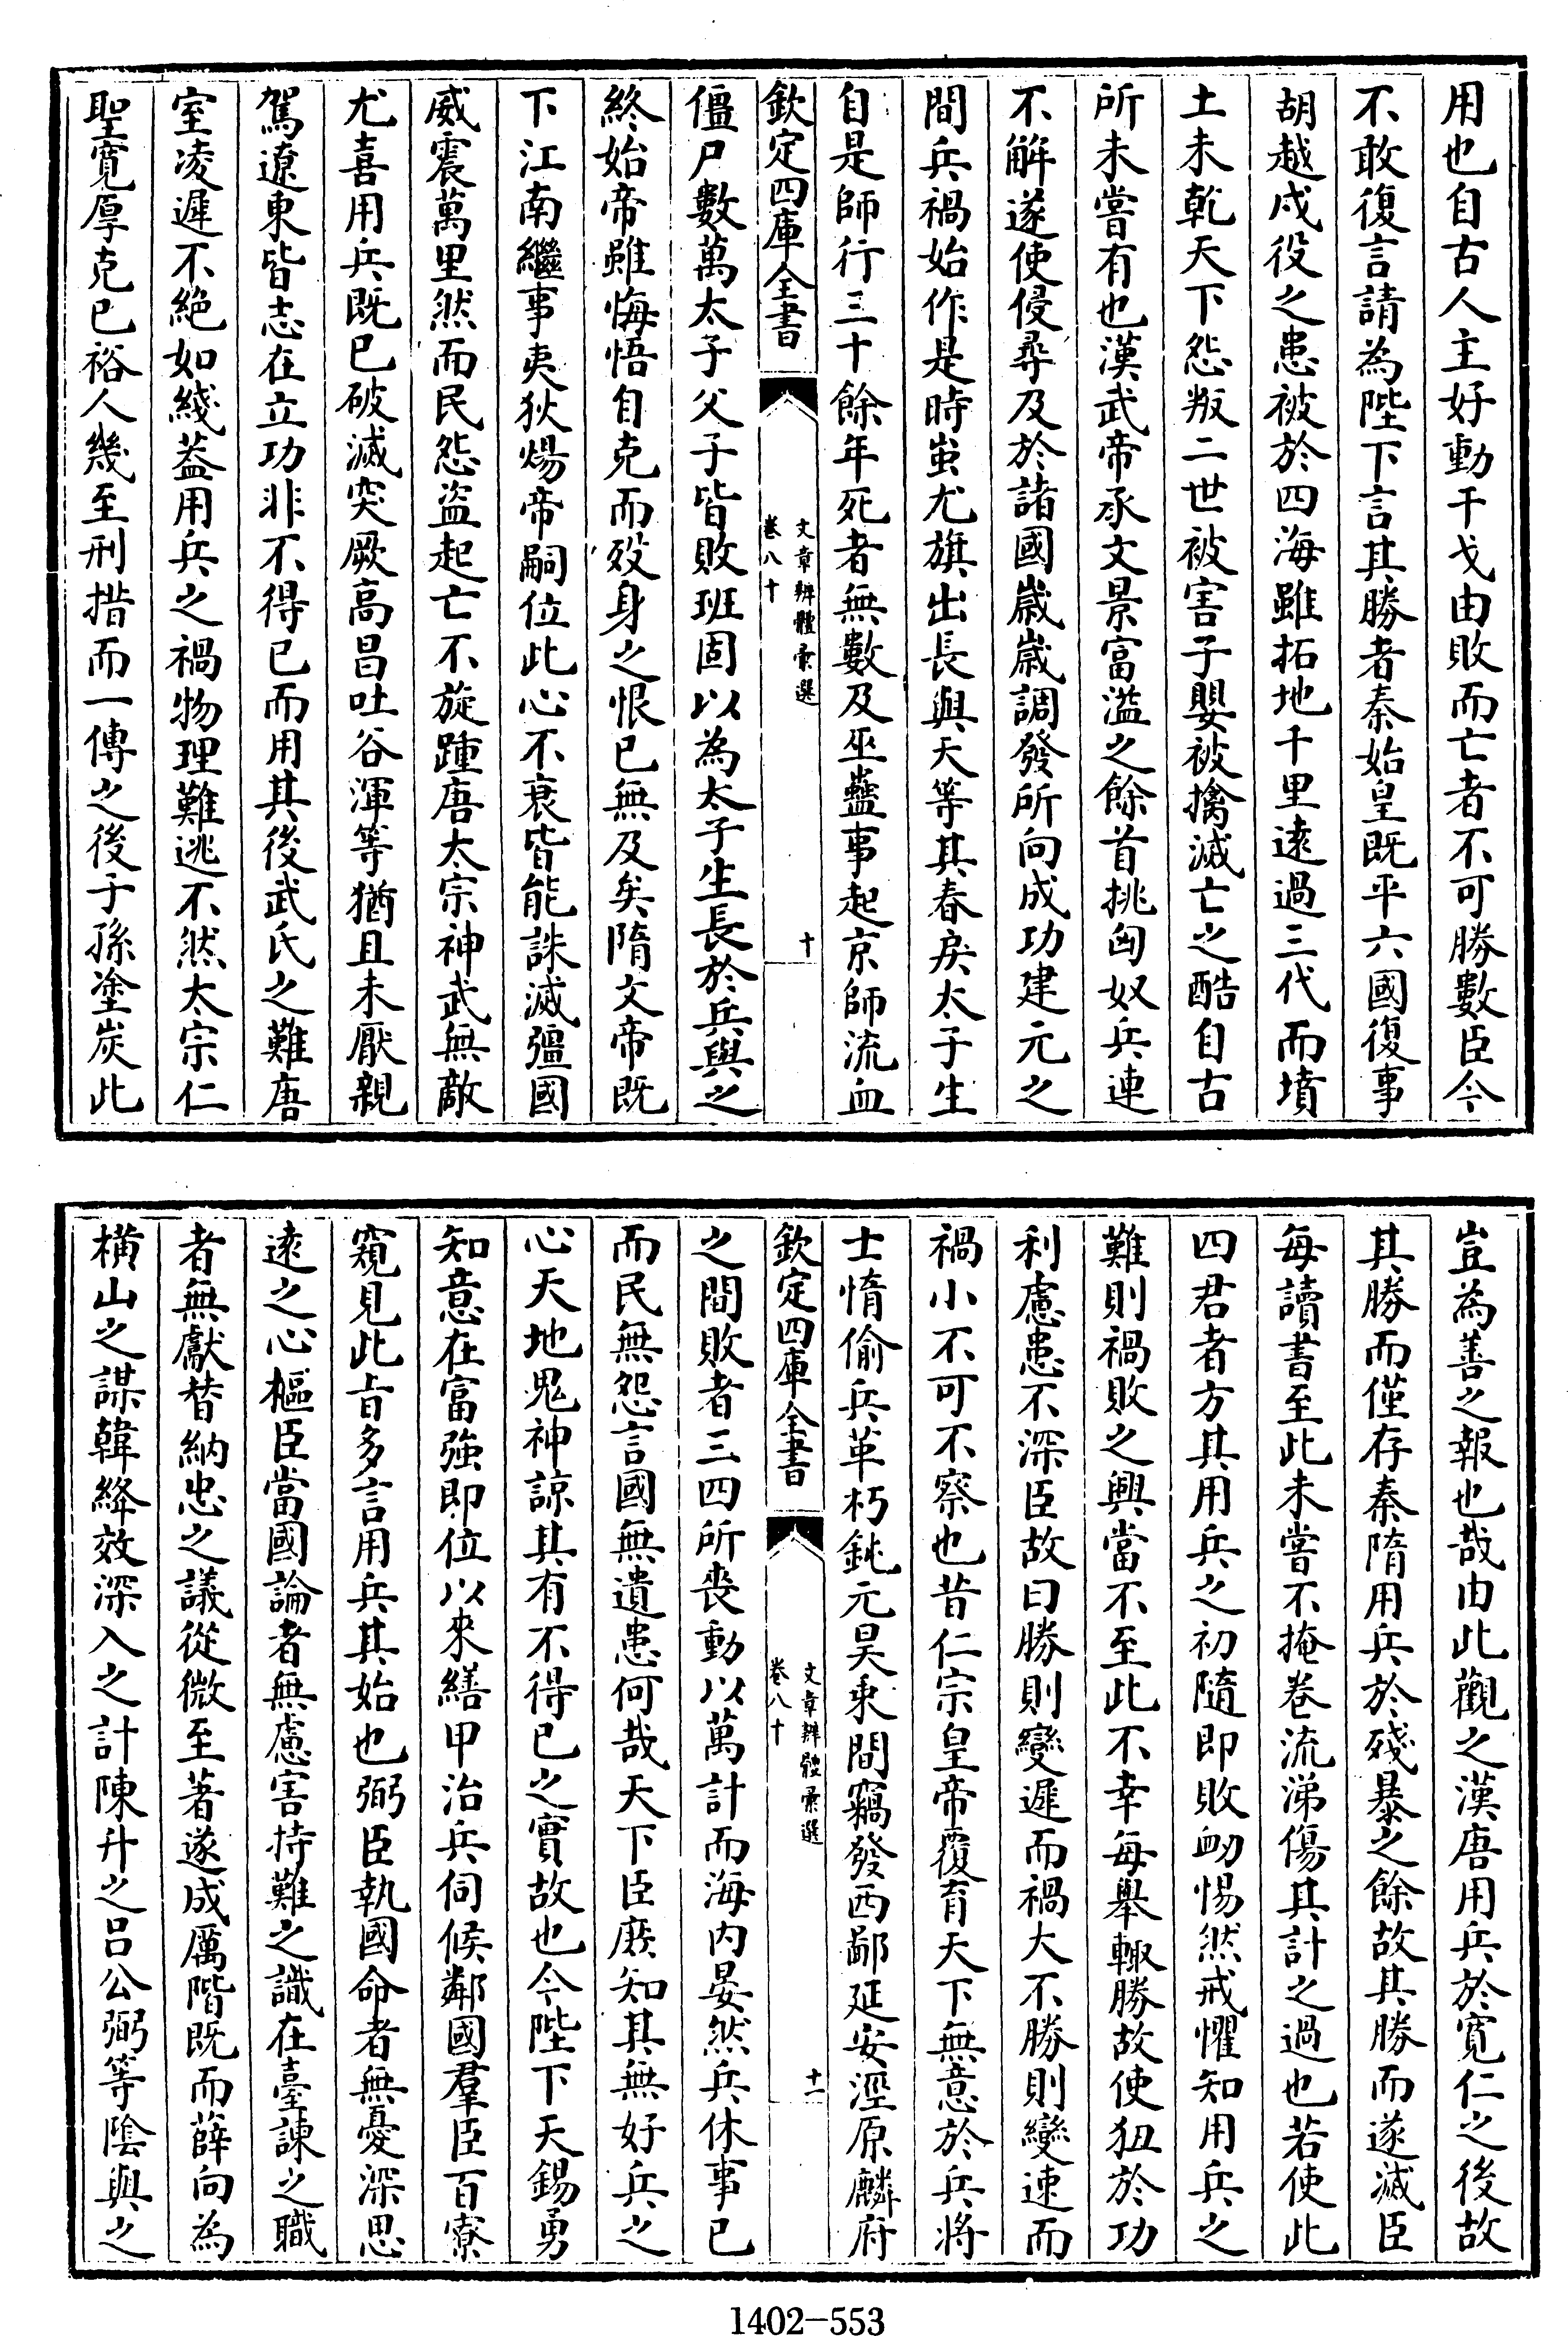 用也自古人主好動干戈由敗而亡者不可勝數臣今
不敢復言請為陛下言其勝者秦始皇既平六國復事
胡越戍役之患被於四海雖拓地千里逺過三代而墳
土未乾天下怨叛二世被害子嬰被擒滅亡之酷自古
所未嘗有也漢武帝承文景富溢之餘首挑匈奴兵連
不解遂使侵尋及於諸國嵗嵗調發所向成功建元之
間兵禍始作是時蚩尤旗出長與天等其春戾太子生
自是師行三十餘年死者無數及巫蠱事起京師流血
欽定四庫全書
文章辨體彙選
卷八十
十
僵尸數萬太子父子皆敗班固以為太子生長於兵與之
終始帝雖悔悟自克而歿身之恨已無及矣隋文帝既
下江南繼事夷狄煬帝嗣位此心不衰皆能誅滅彊國
威震萬里然而民怨盜起亡不旋踵唐太宗神武無敵
尤喜用兵既已破滅突厥高昌吐谷渾等猶且未厭親
駕遼東皆志在立功非不得已而用其後武氏之難唐
室凌遲不絕如綫葢用兵之禍物理難逃不然太宗仁
聖寛厚克已裕人幾至刑措而一傳之後子孫塗炭此
豈為善之報也哉由此觀之漢唐用兵於寛仁之後故
其勝而僅存秦隋用兵於殘暴之餘故其勝而遂滅臣
每讀書至此未嘗不掩卷流涕傷其計之過也若使此
四君者方其用兵之初隨即敗衂惕然戒懼知用兵之
難則禍敗之興當不至此不幸每舉輒勝故使狃於功
利慮患不深臣故曰勝則變遲而禍大不勝則變速而
禍小不可不察也昔仁宗皇帝覆育天下無意於兵將
士惰偷兵革朽鈍元昊乗間竊發西鄙延安涇原麟府
欽定四庫全書
文章辨體彙選
卷八十
十一
之間敗者三四所喪動以萬計而海内晏然兵休事已
而民無怨言國無遺患何哉天下臣庶知其無好兵之
心天地鬼神諒其有不得已之實故也今陛下天錫勇
知意在富強即位以來繕甲治兵伺候鄰國羣臣百寮
窺見此㫖多言用兵其始也弼臣執國命者無憂深思
逺之心樞臣當國論者無慮害持難之識在臺諫之職
者無獻替納忠之議從微至著遂成厲階既而薛向為
橫山之謀韓絳效深入之計陳升之吕公弼等隂與之
1402-553